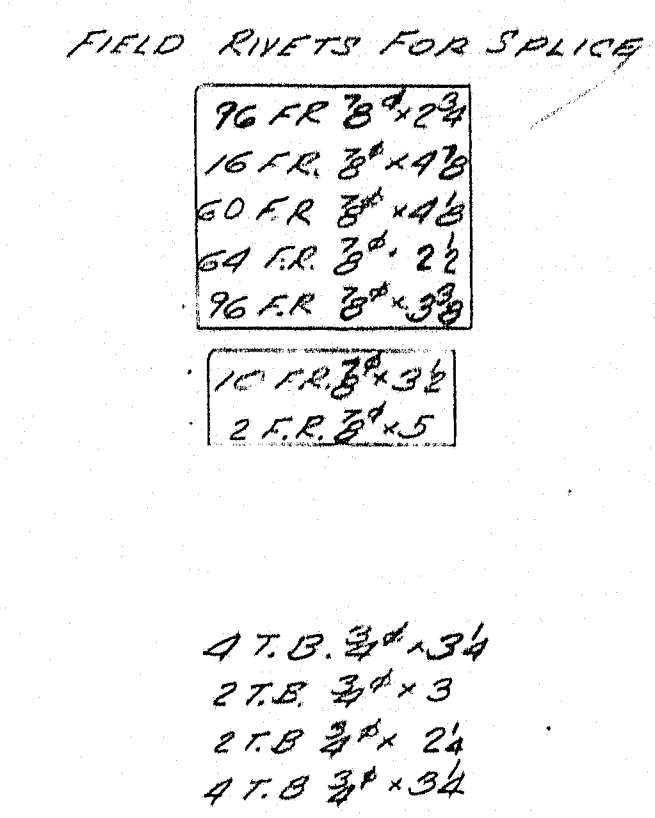 FIELD RIVETS FOR SPLICE
96 F.R 7/8 ø × 2 3/4
16 F.R. 7/8 ø × 4 7/8
60 F.R 7/8 ø × 4 1/8
64 F.R. 7/8 ø · 2 1/2
96 F.R 7/8 ø × 3 3/8
10 F.R. 7/8 ø × 3 1/2
2 F.R. 7/8 ø × 5
4 T.B. 3/4 ø × 3 1/4
2 T.B. 3/4 ø × 3
2 T.B 3/4 ø × 2 1/4
4 T.B 3/4 ø × 3 1/4